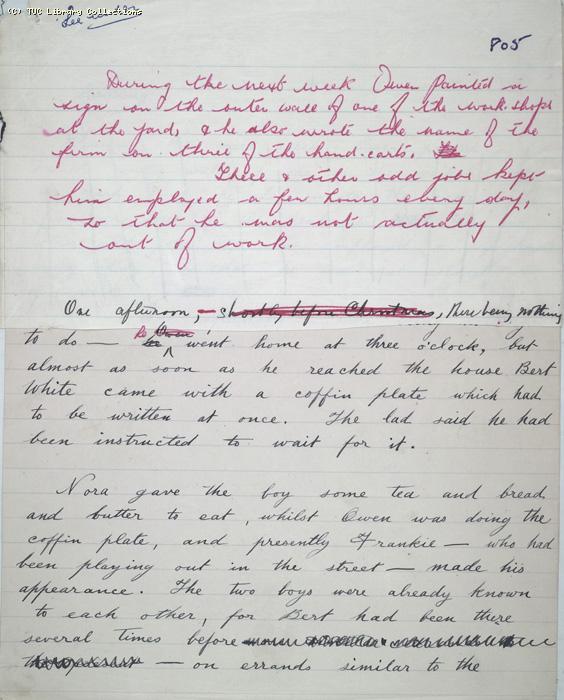 (C) TUC Library Collections
805
During the next week Owen painted a
sign on the outer wall of one of the workshops
at the yard, & he also wrote the name of the
firm on three of the hand-carts.
These & other odd jobs kept
him employed a few hours every day,
so that he was not actually
out of work.
One afternoon, - shortly before Christmas, there being nothing
to do — he Owen went home at three o'clock, but
almost as soon as he reached the house Bert
White came with a coffin plate which had
to be written at once. The lad said he had
been instructed to wait for it.
Nora gave the boy some tea and bread
and butter to eat, whilst Owen was doing the
coffin plate, and presently Frankie — who had
been playing out in the street — made his
appearance. The two boys were already known
to each other, for Bert had been there
several times before
— on errands similar to the